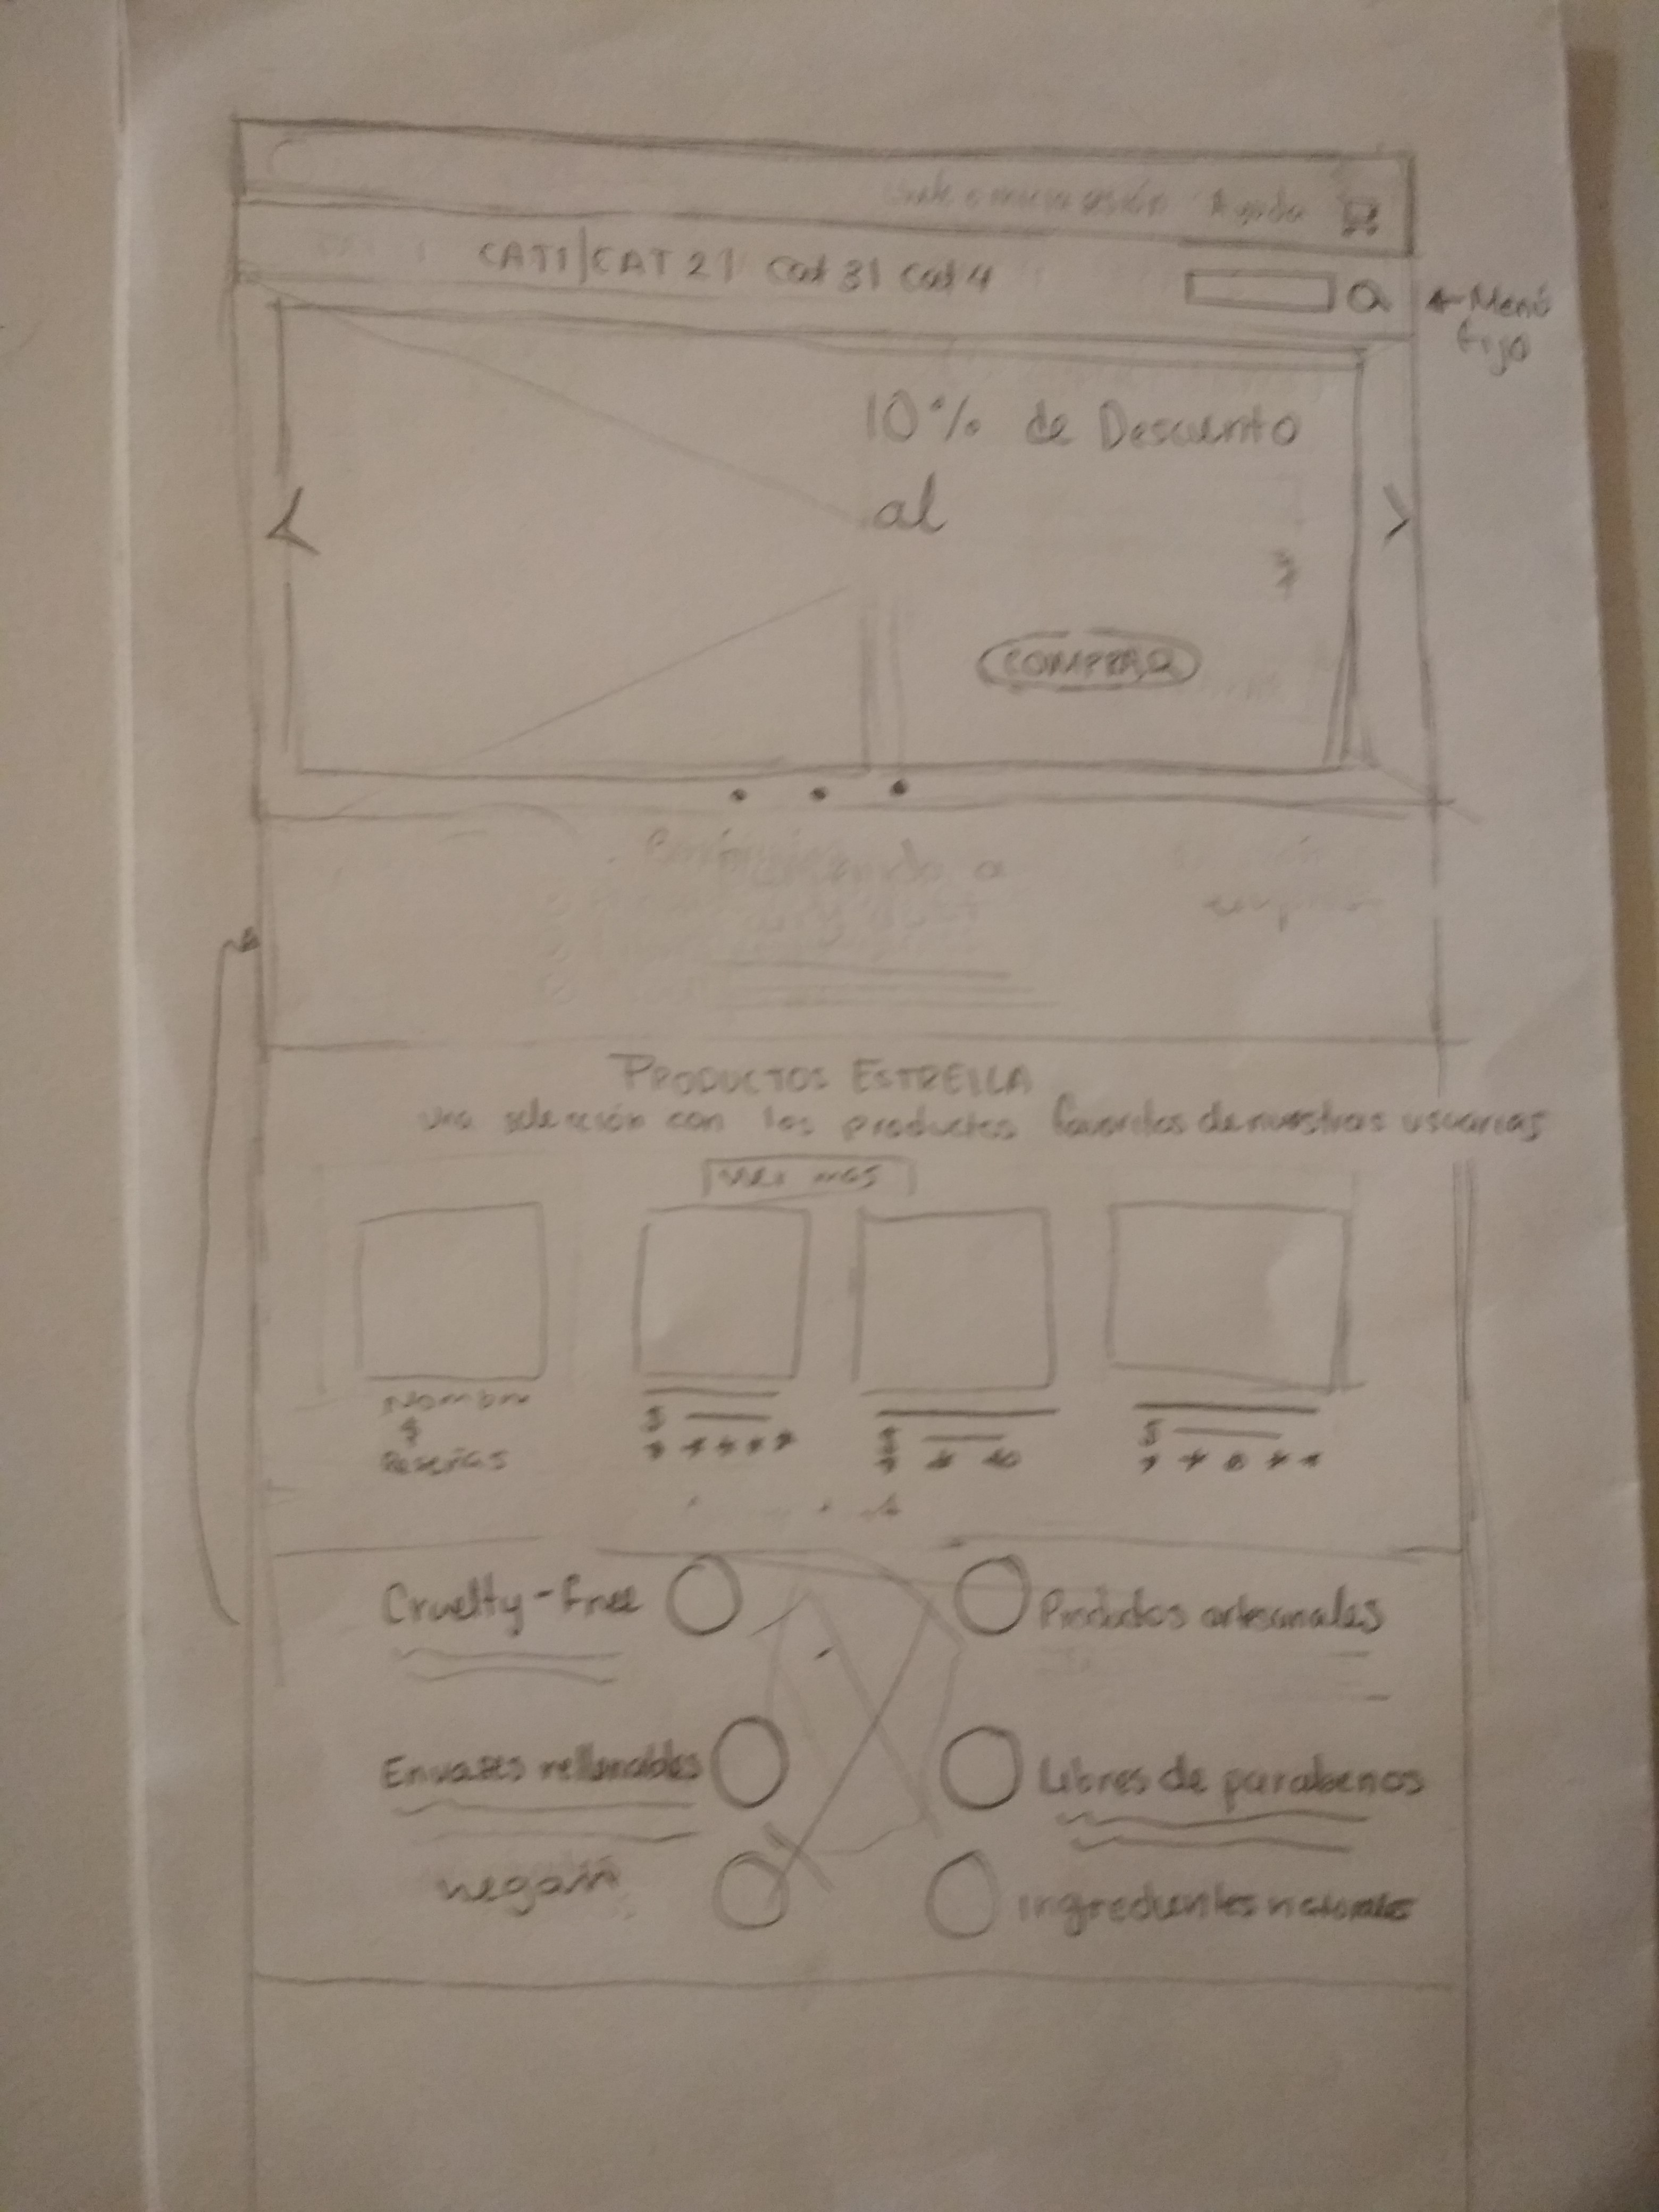 Unete o inicia sesión Ayuda
CAT1|CAT 2| Cat 3| Cat 4
Menú
fijo
10% de Descuento
al
COMPRAR
PRODUCTOS ESTRELLA
una selección con los productos favoritos de nuestras usuarias
Ver más
Nombre
$
$
$
$
Reseñas
Cruelty-free
Productos artesanales
Envases rellenables
Libres de parabenos
Vegan
Ingredientes naturales